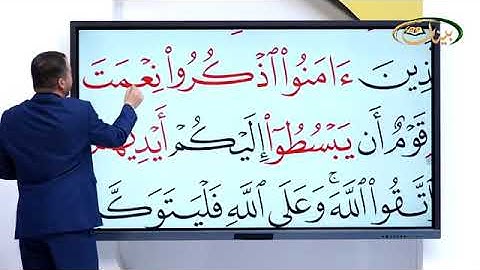 ذِينَ ءَامَنُوا۟ ٱذْكُرُوا۟ نِعْمَتَ
قَوْمٌ أَن يَبْسُطُوٓا۟ إِلَيْكُمْ أَيْدِيَهُ
ٱتَّقُوا۟ ٱللَّهَ ۚ وَعَلَى ٱللَّهِ فَلْيَتَوَكَّ